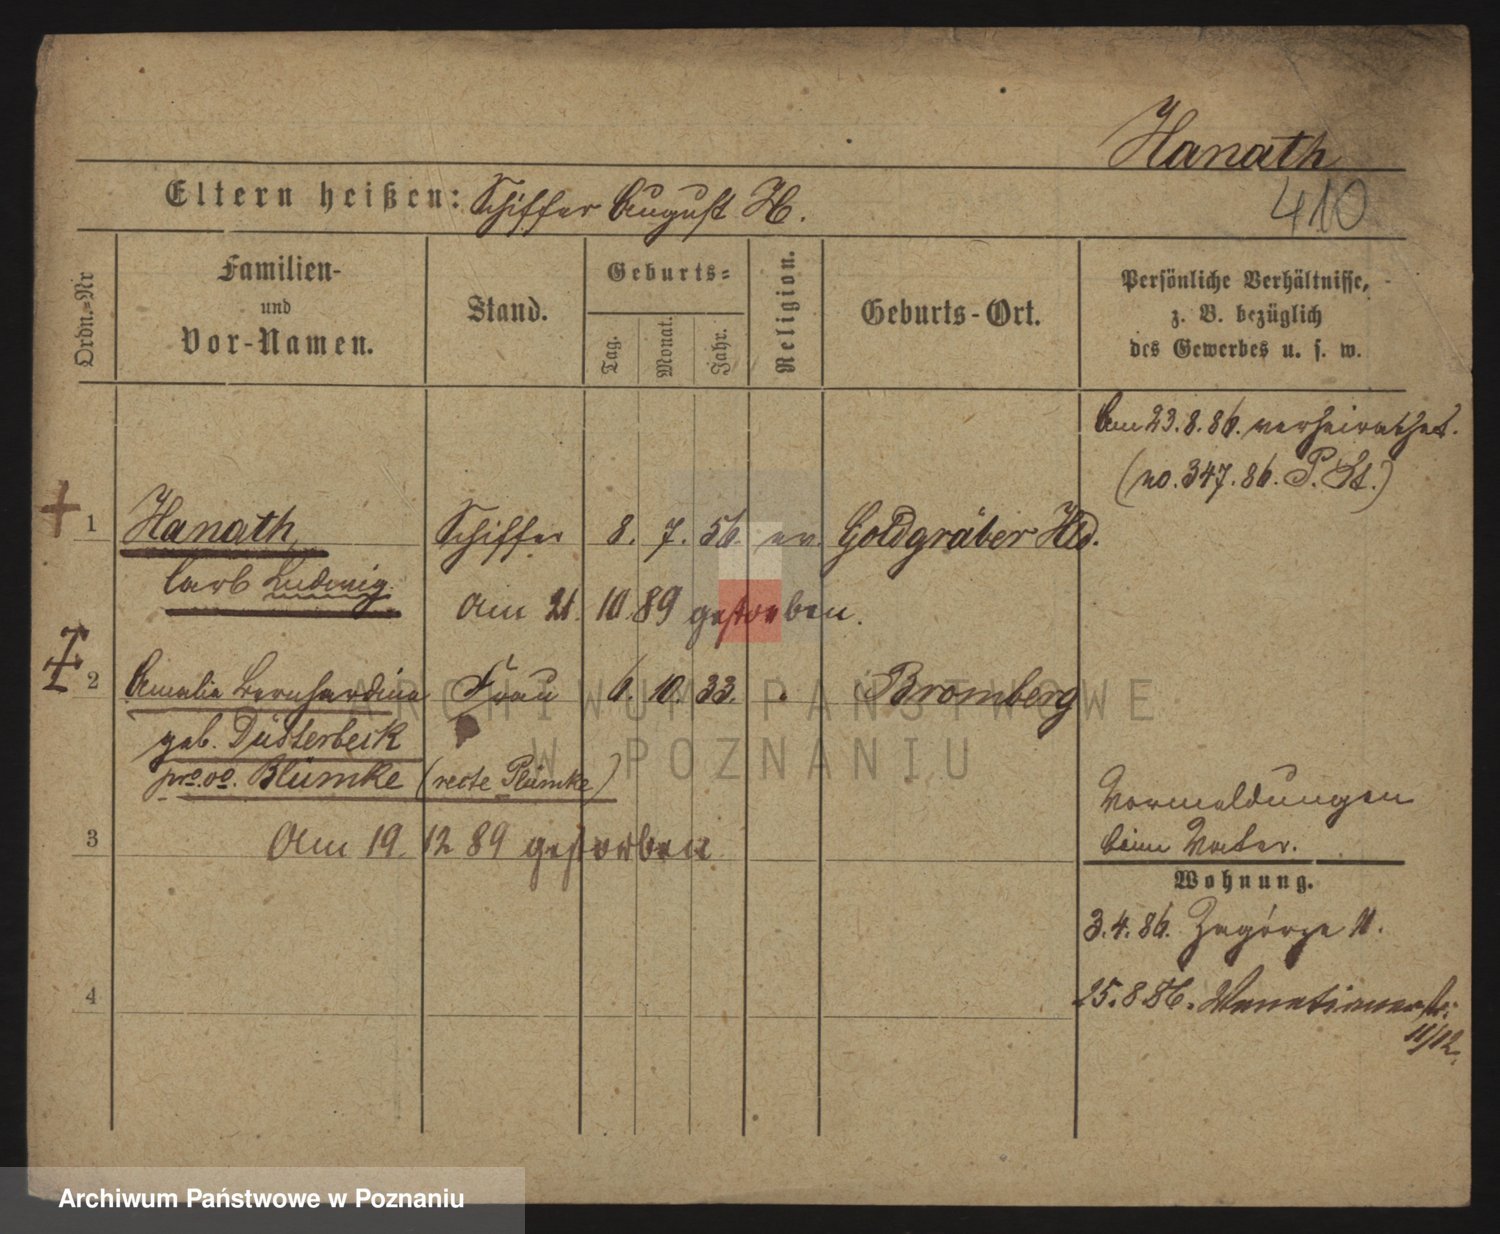 Hanath
410
Eltern heißen: Schiffer August H.
Ordn.-Nr
Familien-
und
Vor-Namen.
Stand.
Geburts-
Tag.
Monat.
Jahr.
Religion.
Geburts-Ort.
Persönliche Verhältnisse,
z. B. bezüglich
des Gewerbes u. s. w.
Am 23.8.86. verheirathet.
(no. 347.86. P. St.)
1 Hanath, Schiffer 8. 7. 56. ev. Goldgräber Hld.
Carl Ludwig.
Am 21. 10. 89 gestorben.
2 Amalie Bernhardine Frau 6. 10. 33. Bromberg
geb. Düsterbeck
pr. vo. Blümke (recte Plümke)
Vormeldungen
beim Vater.
3 Am 19. 12 89 gestorben
Wohnung.
3.4.86. Zagórze 11.
4 25.8.86. Venetianerstr.
11/12.
ARCHIWUM PAŃSTWOWE
W POZNANIU
Archiwum Państwowe w Poznaniu